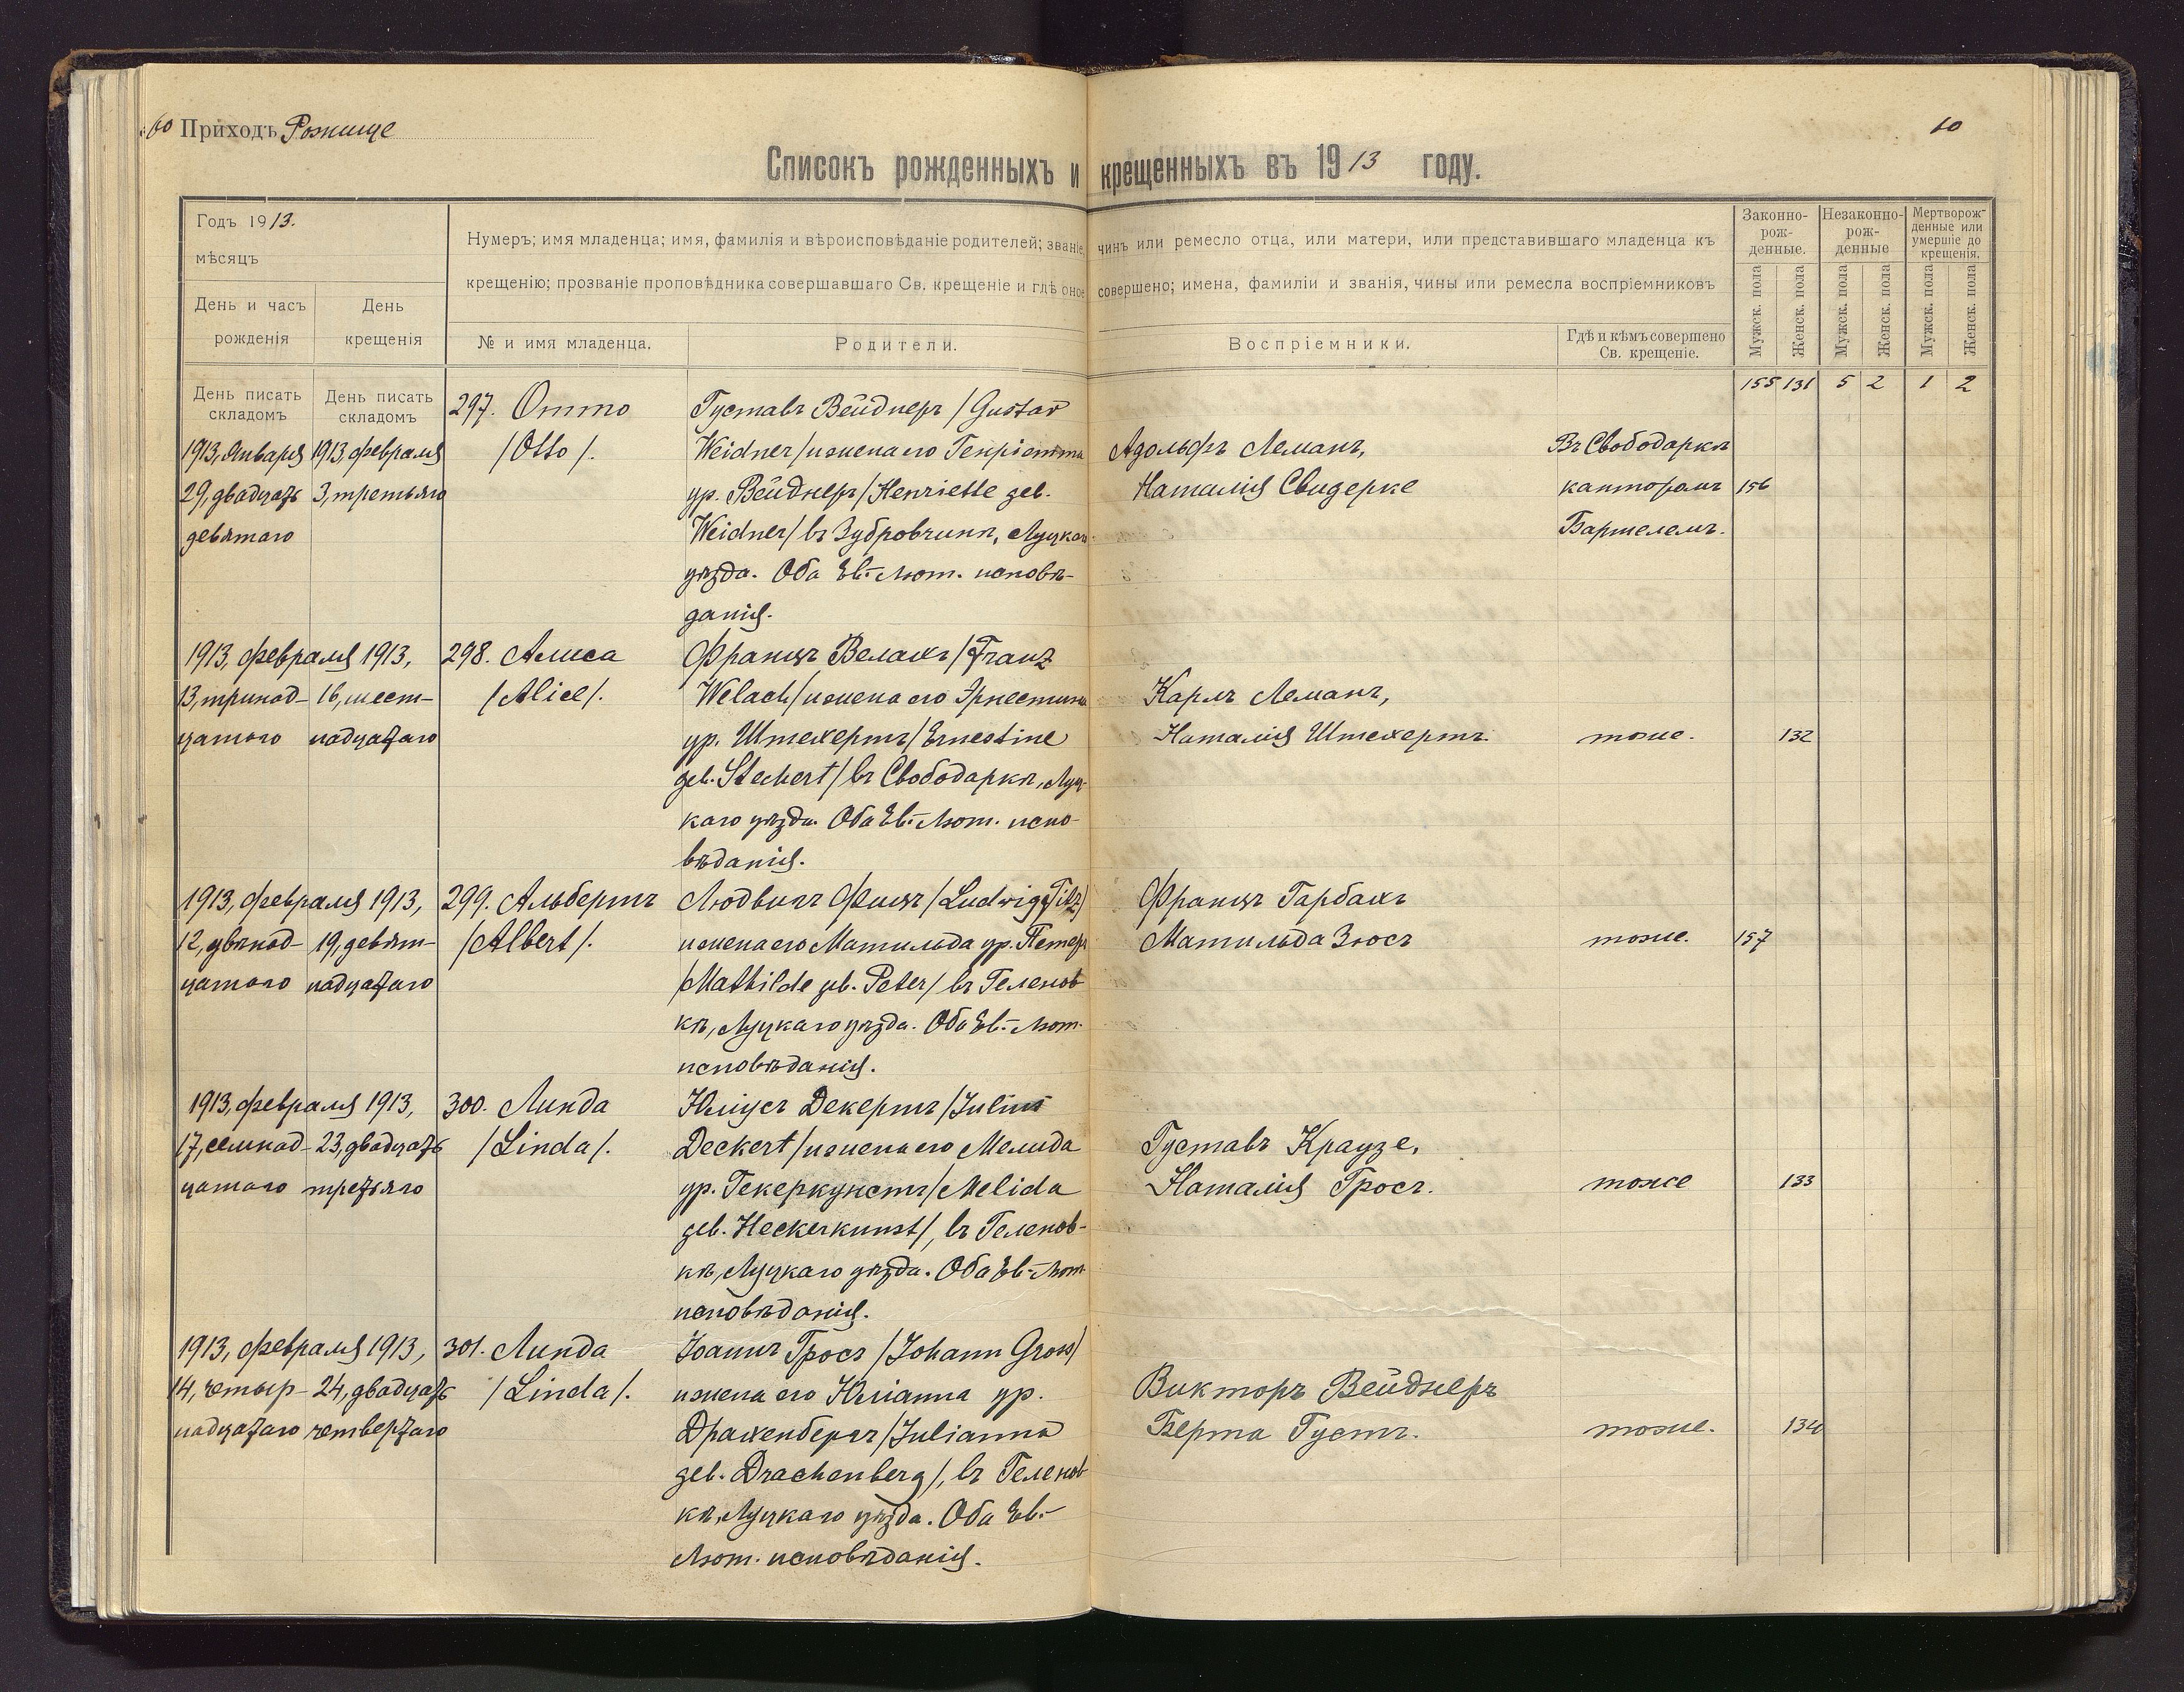 60 Приходъ Рожище
60
Списокъ рожденныхъ и крещенныхъ въ 1913 году.
Годъ 1913.
мѣсяцъ
День и часъ рожденія
День крещенія
Нумеръ; имя младенца; имя, фамилія и вѣроисповѣданіе родителей; званіе, чинъ или ремесло отца, или матери, или представившаго младенца къ
крещенію; прозваніе проповѣдника совершавшаго Св. крещеніе и гдѣ оное совершено; имена, фамиліи и званія, чины или ремесла воспріемниковъ
№ и имя младенца.
Родители.
Воспріемники.
Гдѣ и кѣмъ совершено
Св. крещеніе.
Законно-
рож-
денные.
Незаконно-
рож-
денные
Мертворож-
денные или
умершіе до
крещенія.
Мужск. пола
Женск. пола
Мужск. пола
Женск. пола
Мужск. пола
Женск. пола
День писать
складомъ
День писать
складомъ
155 131 5 2 1 2
1913, Января
29, двадцать
девятаго
1913 февраля
3, третьяго
297. Отто
/Otto/.
Густавъ Вейднеръ /Gustav
Weidner/ и жена его Генріетта
ур. Вейднеръ /Henriette geb.
Weidner/ въ Зубровчинѣ, Луцкаго
уѣзда. Оба Ев.-Лют. исповѣ-
данія.
Адольфъ Леманъ,
Наталія Свидерке
Въ Свободаркѣ
канторомъ
Бартелемъ.
156
1913, февраля
13, тринад-
цатаго
1913,
16, шест-
надцатаго
298. Алиса
/Alice/.
Францъ Велахъ /Franz
Welach/ и жена его Эрнестина
ур. Штехертъ /Ernestine
geb. Stechert/ въ Свободаркѣ, Луц-
каго уѣзда. Оба Ев.-Лют. испо-
вѣданія.
Карлъ Леманъ,
Наталія Штехертъ.
тоже.
132
1913, февраля
12, двѣнад-
цатаго
1913,
19, девят-
надцатаго
299. Альбертъ
/Albert/.
Людвигъ Фицъ /Ludwig Fitz/
и жена его Матильда ур. Петеръ
/Mathilde geb. Peter/ въ Геленов-
кѣ, Луцкаго уѣзда. Оба Ев.-Лют.
исповѣданія.
Францъ Гарбахъ
Матильда Зюсъ
тоже.
157
1913, февраля
17, семнад-
цатаго
1913,
23, двадцать
третьяго
300. Линда
/Linda/.
Юліусъ Декертъ /Julius
Deckert/ и жена его Мелида
ур. Гекеркунстъ /Melida
geb. Heckerkunst/, въ Геленов-
кѣ, Луцкаго уѣзда. Оба Ев.-Лют.
исповѣданія.
Густавъ Краузе,
Наталія Гросъ.
тоже
133
1913, февраля
14, четыр-
надцатаго
1913,
24, двадцать
четвертаго
301. Линда
/Linda/.
Іоаннъ Гросъ /Johann Gross/
и жена его Юліанна ур.
Драхенбергъ /Julianna
geb. Drachenberg/, въ Геленов-
кѣ, Луцкаго уѣзда. Оба Ев.-
Лют. исповѣданія.
Викторъ Вейднеръ
Берта Густъ.
тоже.
134